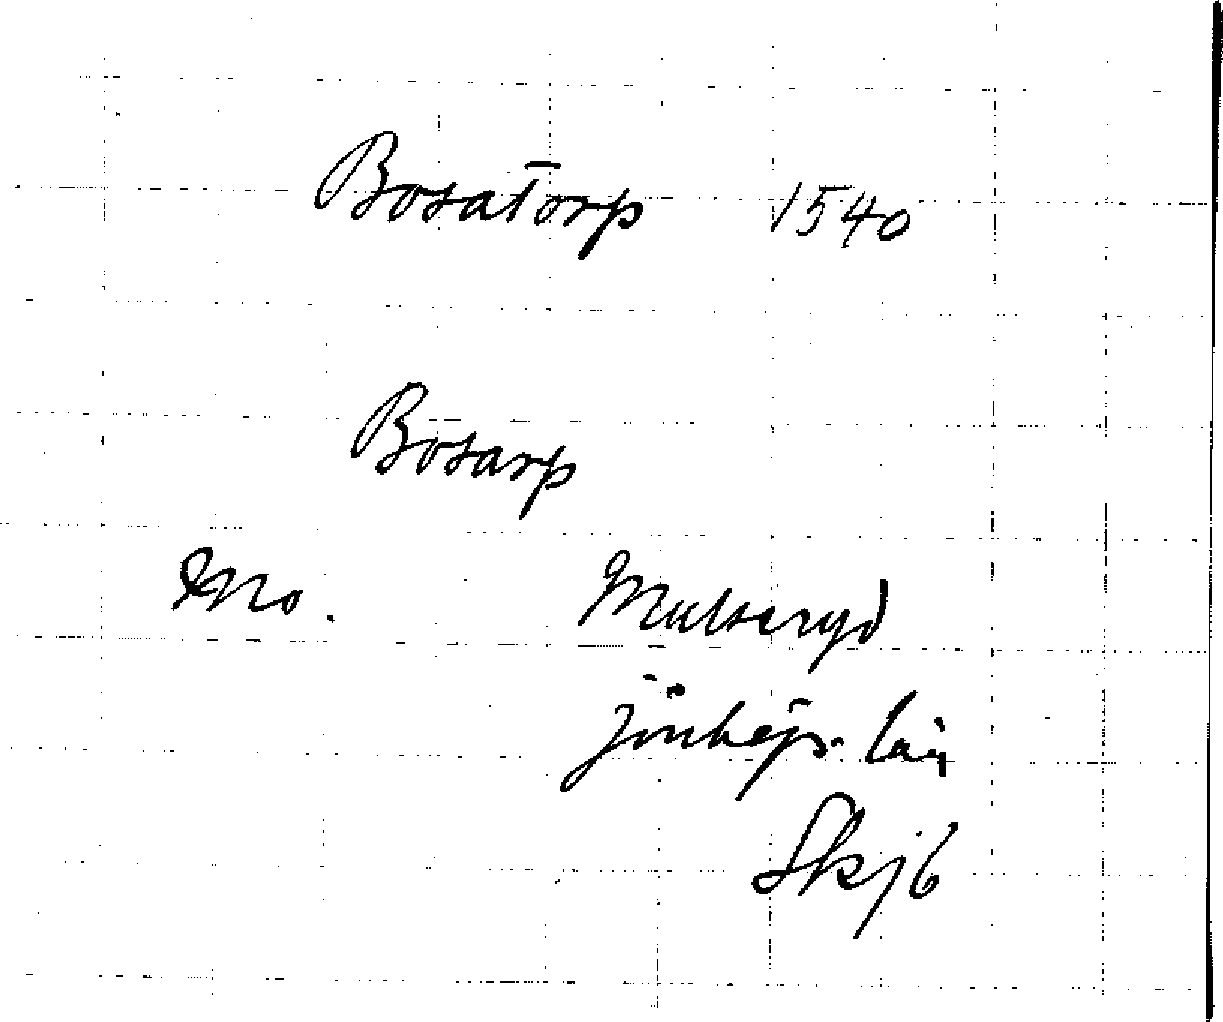 Bosatorp 1540
Bosarp
Mo. Mulseryd
Jönköps. län
Skjb